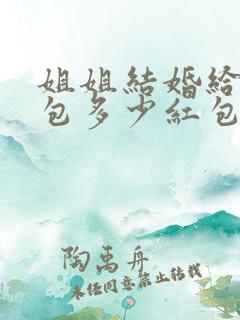 姐姐結婚給
包多少紅包
陶禹舟
未任同意禁止轉載